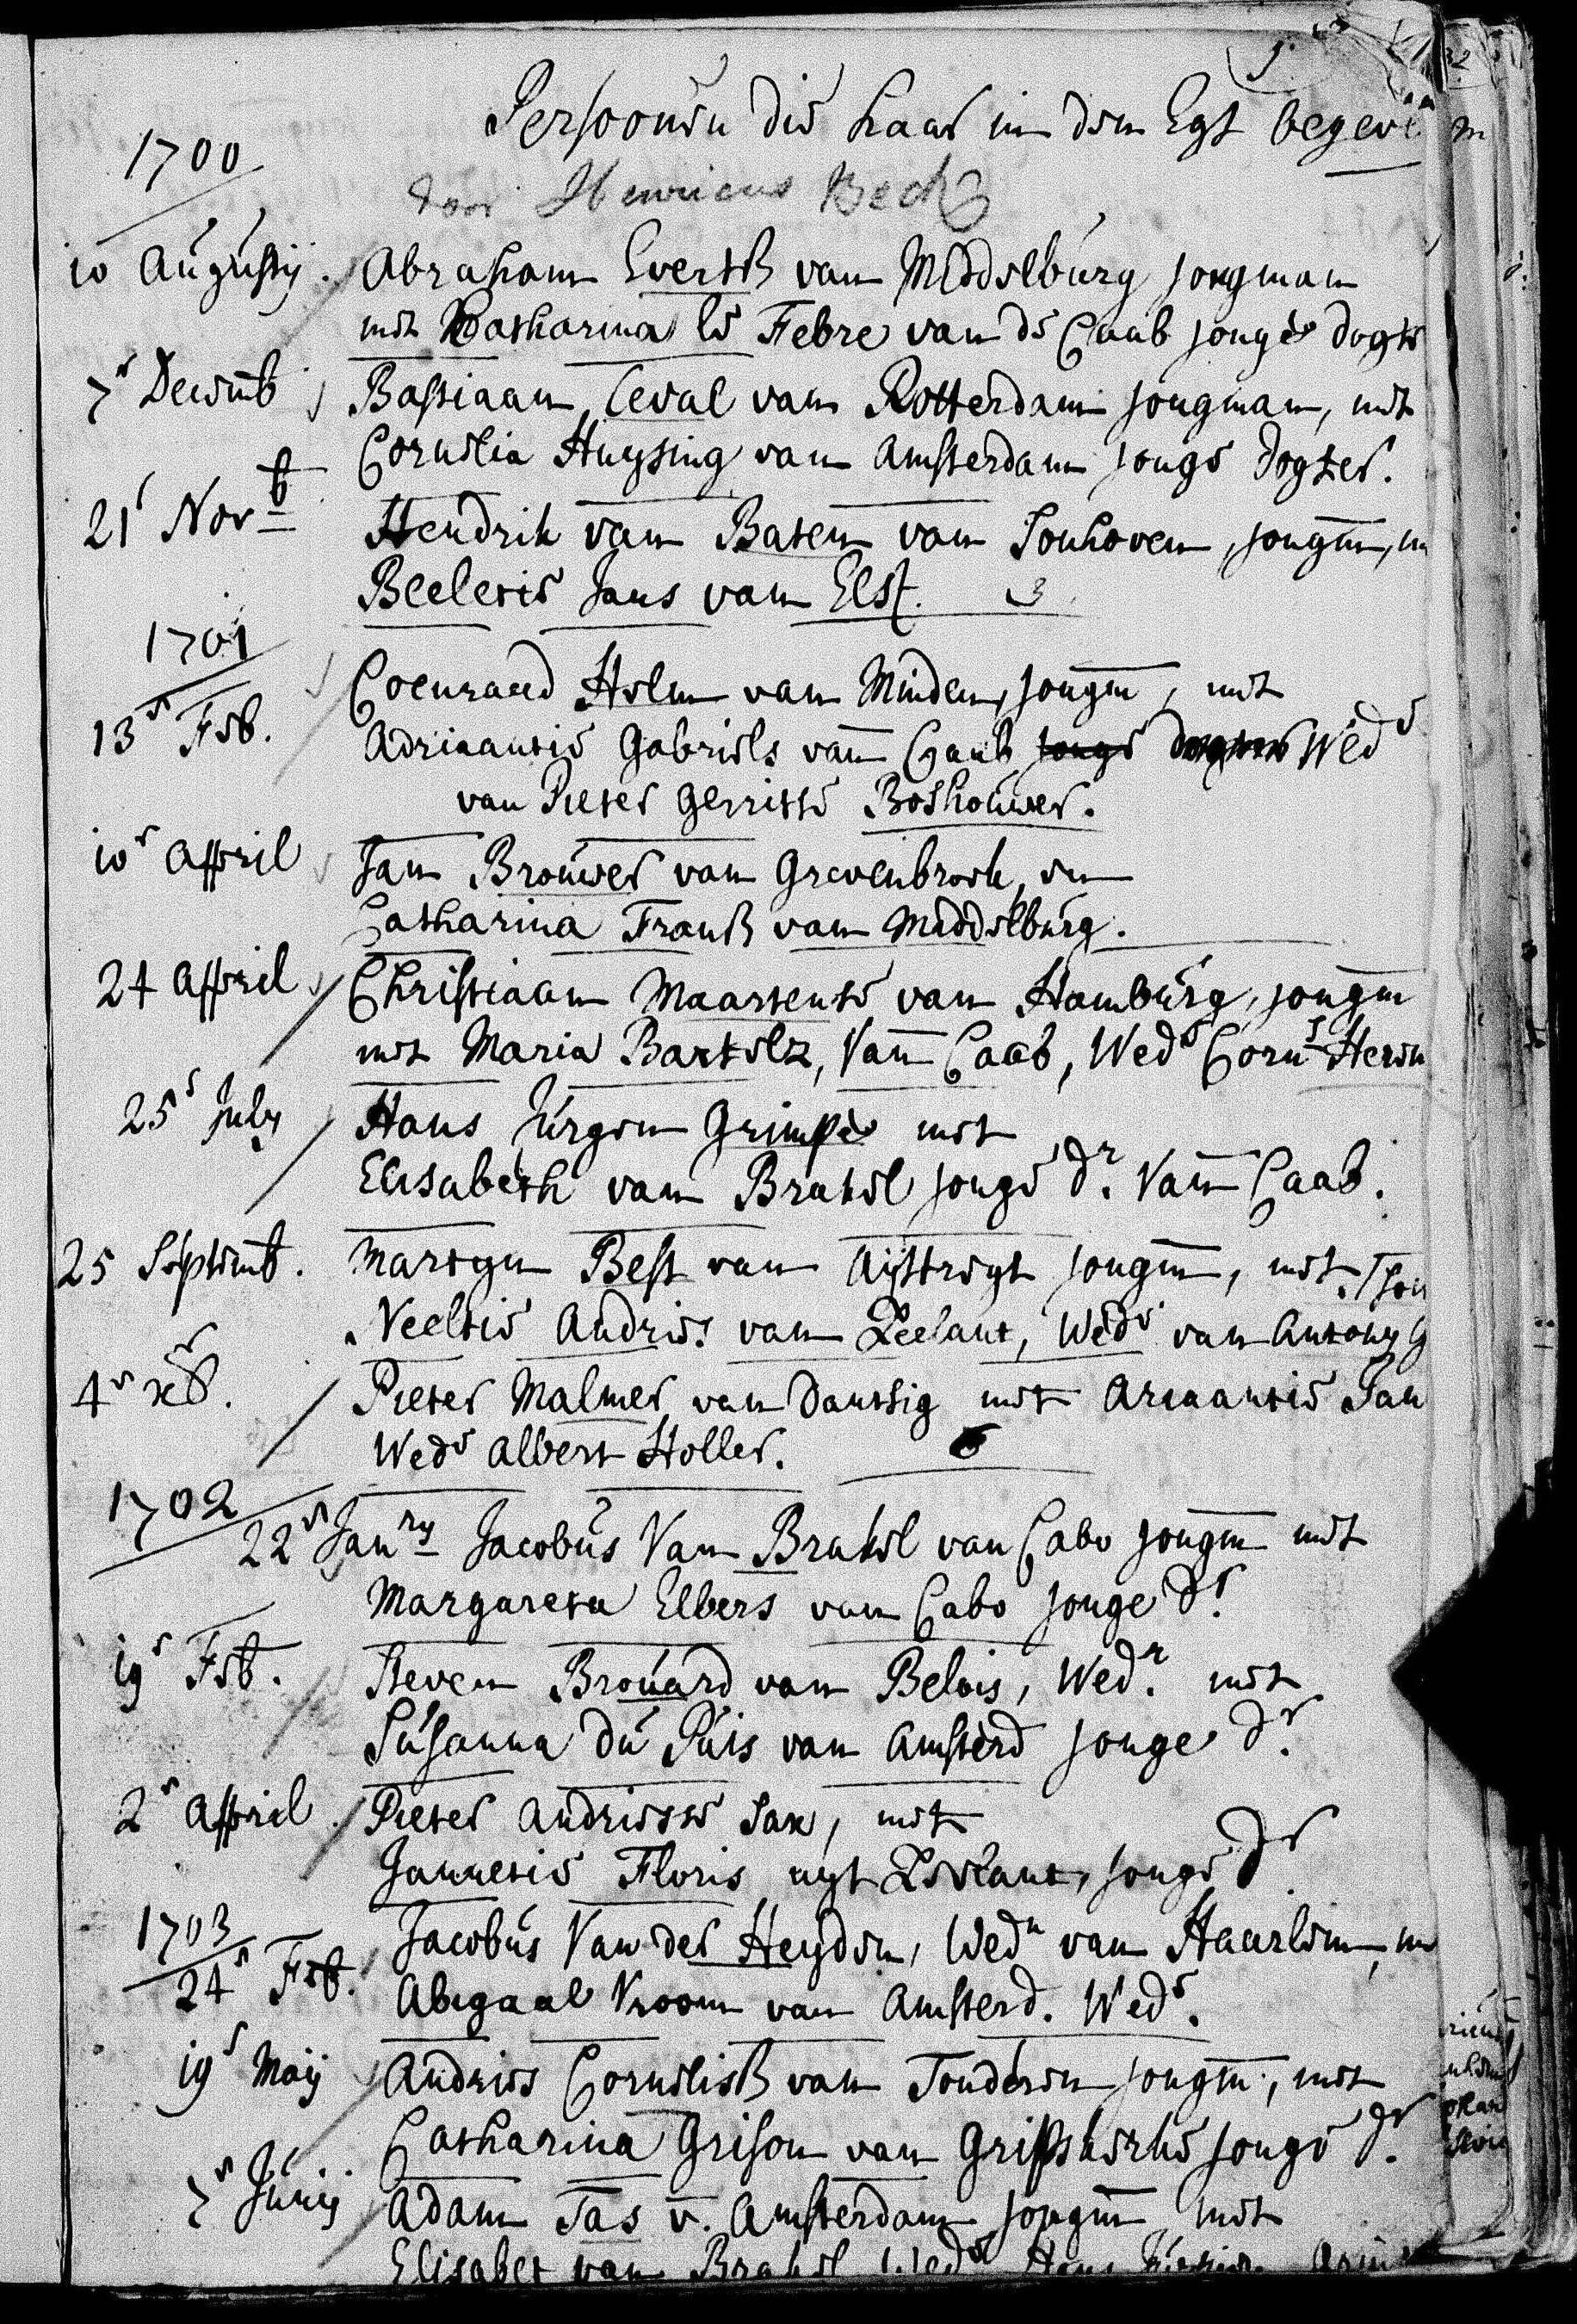 Persoonen die haar in den Egt begeve
1700
door Henricus Beck
10 Augustij. Abraham Evertsz van Middelburg jongman
met Catharina le Febre van de Caab jonge dogter
7e Decemb Bastiaan Ceval van Rotterdam jongman, met
Cornelia Huysing van Amsterdam jonge dogter.
21e Novb Hendrik van Baten van Sonhoven, jongm, m
Beeletie Jans van Elst.
1701
13e Feb. Coenraed Helm van Minden, jongm, met
Adriaantie Gabriels van Caab jonge dogter Wede
van Pieter Gerritse Boshouwer.
10e April Jan Brouwer van Grevenbroek, en
Catharina Fransz van Middelburg.
24 April Christiaan Maartense van Hamburg, jongm
met Maria Bartelz, van Caab, Wede Corns
25e July Hans Jurgen Grimpe met
Elisabeth van Brakel jonge dr. van Caab.
25 Septemb. Martyn Best van Uijttregt jongm, met
Neeltie Andries van Zeelant, Wede van Antony
4e xb. Pieter Malmer van Dantsig met Ariaantie Jan
Wede Albert Holler.
1702
22e Janry Jacobus Van Brakel van Cabo jongm met
Margareta Elbers van Cabo jonge dr.
19e Feb. Steven Brouard van Belois, Wedr. met
Susanna du Puis van Amsterd jonge dr.
2e April. Pieter Andriesse Sax, met
Jannetie Floris uyt Zeelant, jonge dr
1703
24e Feb. Jacobus Van der Heyden, Wedn van Haarlem, m
Abigaal Vroom van Amsterd. Wede.
19e Maij Andries Cornelisz van Tonderen jongm, met
Catharina Grison van Gripskerke jonge dr.
7e Junij Adam Tas v. Amsterdam jongm met
Elisabet van Brakel Wede Hans